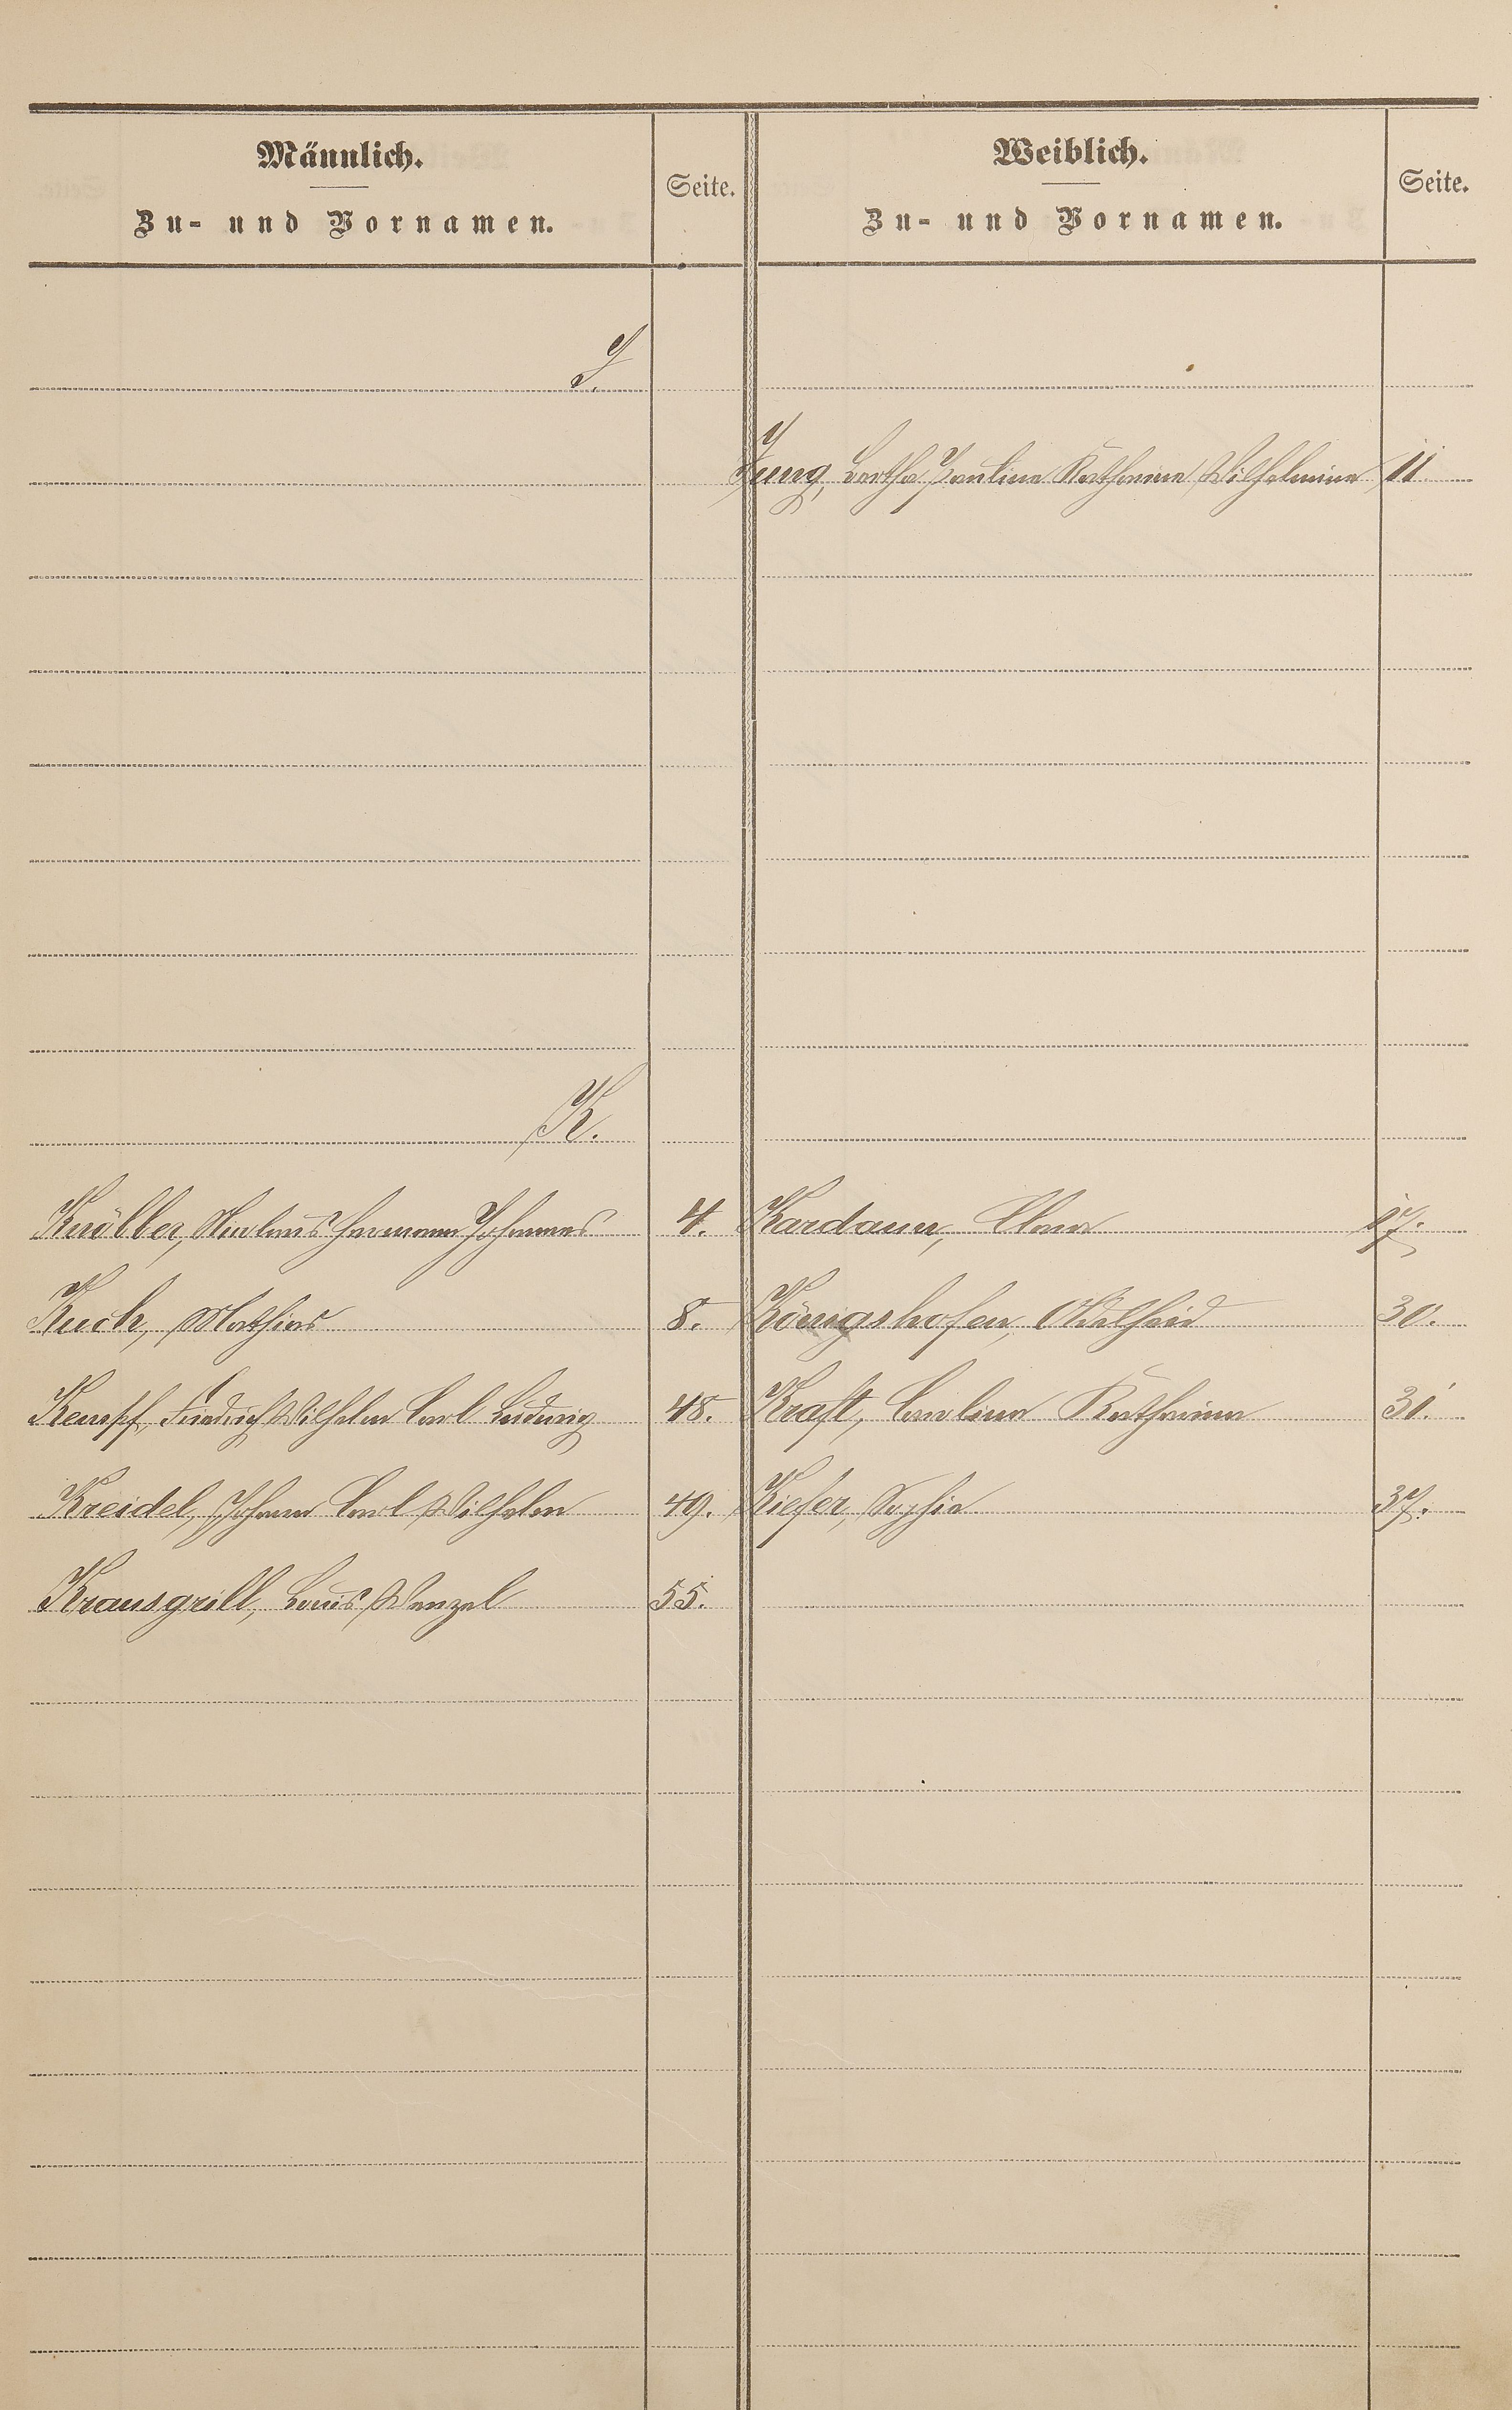 Männlich.
Zu- und Vornamen.
Seite.
Weiblich.
Zu- und Vornamen.
Seite.
J.
Jung, Bertha Pauline Katharina Wilhelmine 11.
K.
Knöbber, Nicolaus Hermann Johannes 4. Kardaun, Clara 27.
Kuch, Mathias 8. Königshofen, Adelheid 30.
Kempf, Friedrich Wilhelm Carl Ludwig 48. Kraft, Carolina Katharina 31.
Kreidel, Johann Carl Wilhelm 49. Kiefer, Sophia 37.
Krausgrill, Louis Wenzel 55.